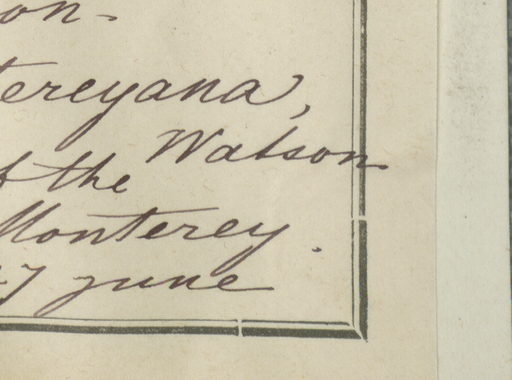 on-
tereyana,
Watson
f the
Monterey.
27 June